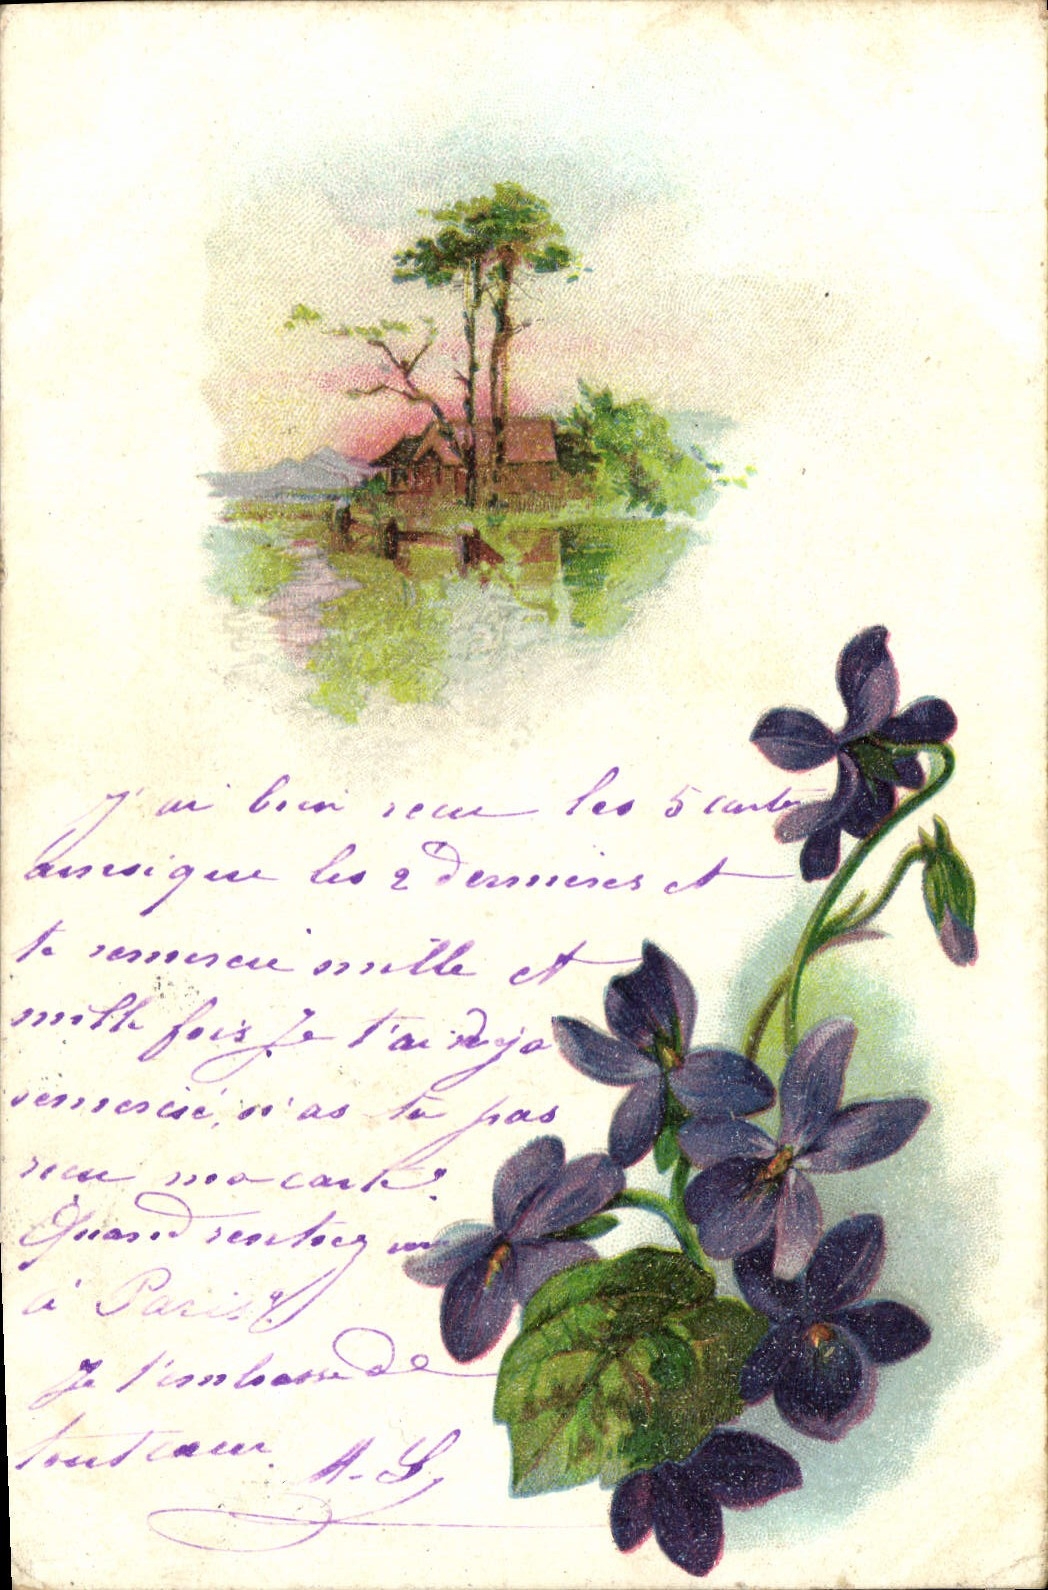 J'ai bien recu les 5 cartes
ainsi que les 2 dernières et
te remercie mille et
mille fois Je t'ai deja
remercié, n'as tu pas
recu ma carte?
Quand rentrez vous
à Paris?
Je t'embrasse de
tout cœur.
A-L